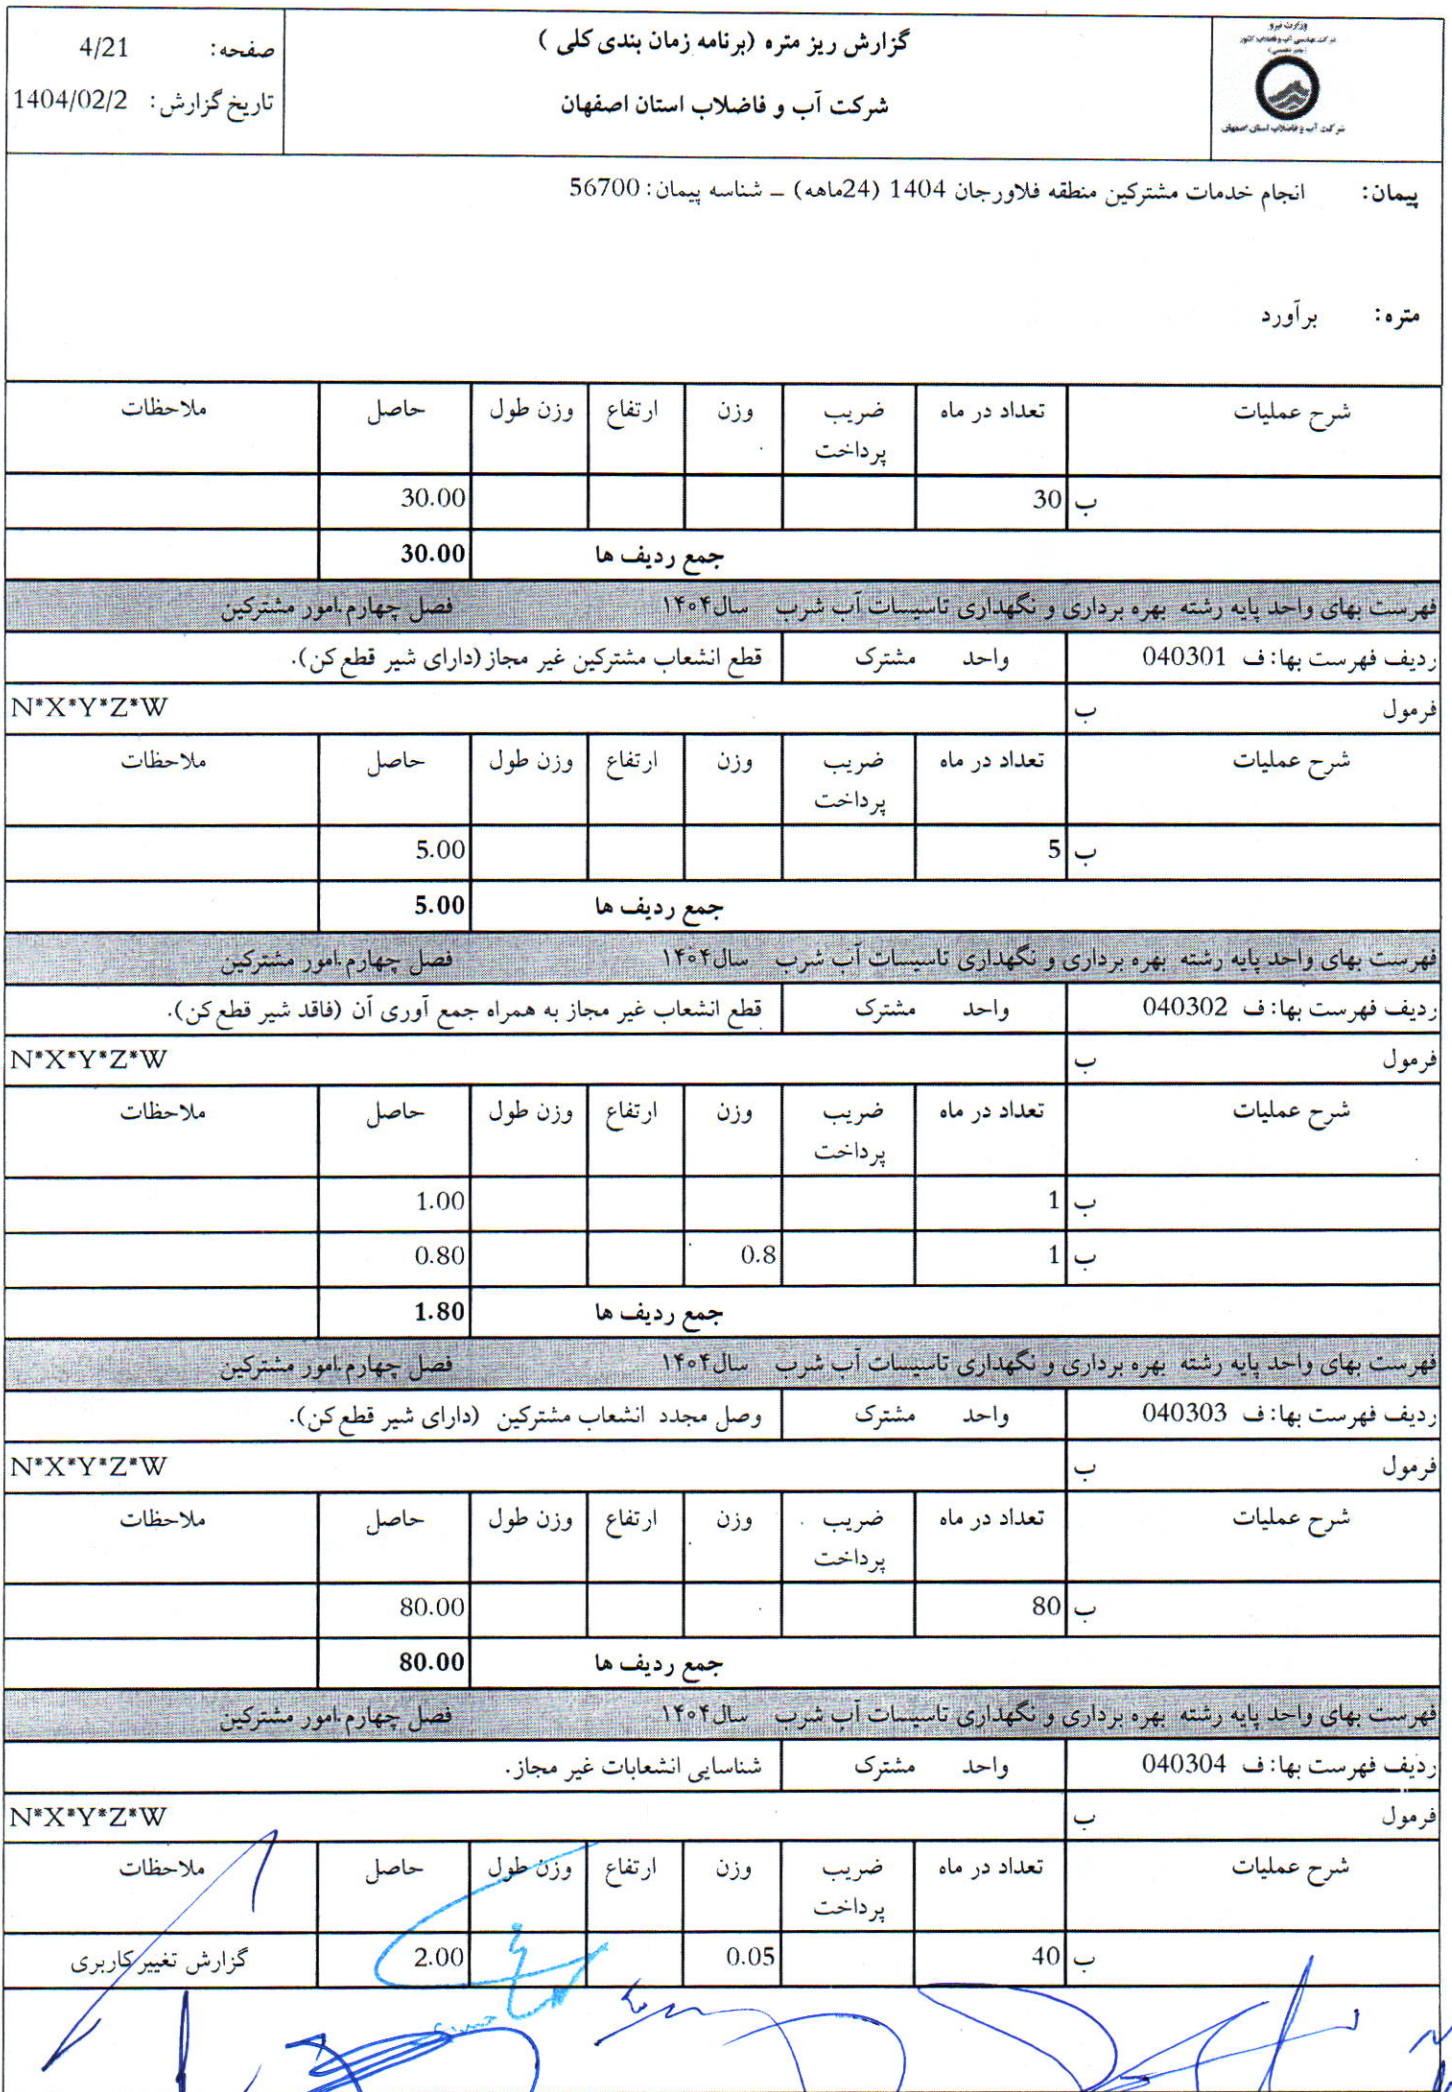 وزارت نیرو
شرکت مهندسی آب و فاضلاب کشور
شرکت آب و فاضلاب استان اصفهان
گزارش ریز متره (برنامه زمان بندی کلی )
شرکت آب و فاضلاب استان اصفهان
صفحه: 4/21
تاریخ گزارش: 1404/02/2
پیمان: انجام خدمات مشترکین منطقه فلاورجان 1404 (24ماهه) – شناسه پیمان: 56700
متره: برآورد
شرح عملیات تعداد در ماه ضریب پرداخت وزن ارتفاع وزن طول حاصل ملاحظات
ب 30 30.00
جمع ردیف ها 30.00
فهرست بهای واحد پایه رشته بهره برداری و نگهداری تاسیسات آب شرب سال۱۴۰۴ فصل چهارم.امور مشترکین
ردیف فهرست بها: ف 040301 واحد مشترک قطع انشعاب مشترکین غیر مجاز (دارای شیر قطع کن).
فرمول ب N*X*Y*Z*W
شرح عملیات تعداد در ماه ضریب پرداخت وزن ارتفاع وزن طول حاصل ملاحظات
ب 5 5.00
جمع ردیف ها 5.00
فهرست بهای واحد پایه رشته بهره برداری و نگهداری تاسیسات آب شرب سال۱۴۰۴ فصل چهارم.امور مشترکین
ردیف فهرست بها: ف 040302 واحد مشترک قطع انشعاب غیر مجاز به همراه جمع آوری آن (فاقد شیر قطع کن).
فرمول ب N*X*Y*Z*W
شرح عملیات تعداد در ماه ضریب پرداخت وزن ارتفاع وزن طول حاصل ملاحظات
ب 1 1.00
ب 1 0.8 0.80
جمع ردیف ها 1.80
فهرست بهای واحد پایه رشته بهره برداری و نگهداری تاسیسات آب شرب سال۱۴۰۴ فصل چهارم.امور مشترکین
ردیف فهرست بها: ف 040303 واحد مشترک وصل مجدد انشعاب مشترکین (دارای شیر قطع کن).
فرمول ب N*X*Y*Z*W
شرح عملیات تعداد در ماه ضریب پرداخت وزن ارتفاع وزن طول حاصل ملاحظات
ب 80 80.00
جمع ردیف ها 80.00
فهرست بهای واحد پایه رشته بهره برداری و نگهداری تاسیسات آب شرب سال۱۴۰۴ فصل چهارم.امور مشترکین
ردیف فهرست بها: ف 040304 واحد مشترک شناسایی انشعابات غیر مجاز.
فرمول ب N*X*Y*Z*W
شرح عملیات تعداد در ماه ضریب پرداخت وزن ارتفاع وزن طول حاصل ملاحظات
ب 40 0.05 2.00 گزارش تغییر کاربری